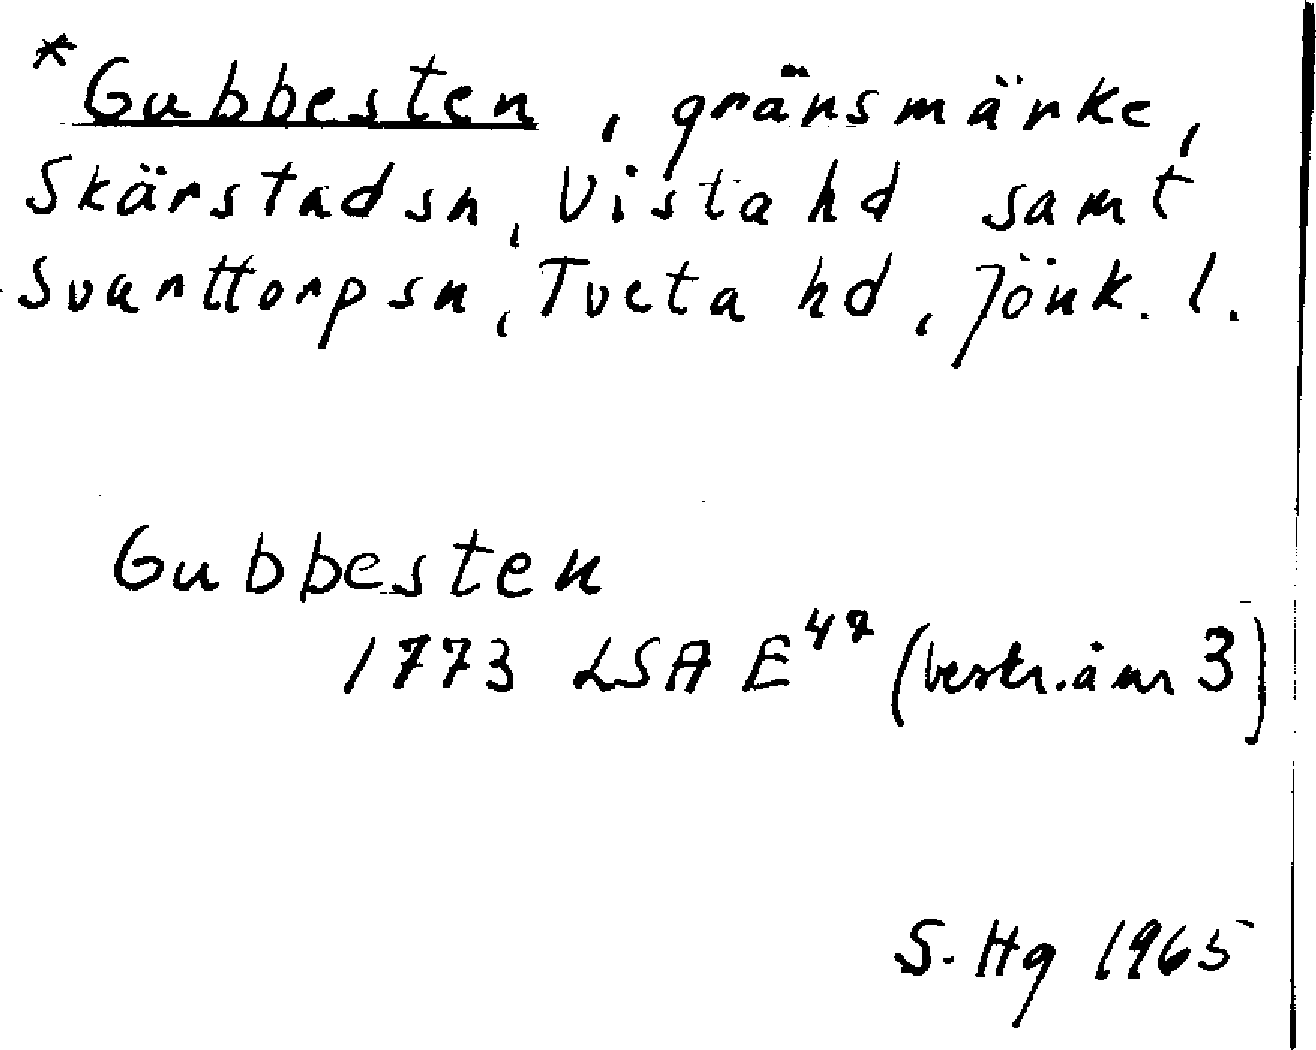 *Gubbesten, gränsmärke,
Skärstad sn, Vista hd samt
Svarttorp sn, Tveta hd, Jönk. l.
Gubbesten
1773 LSA E⁴⁷ (beskr. å nr 3)
S. Hg 1965